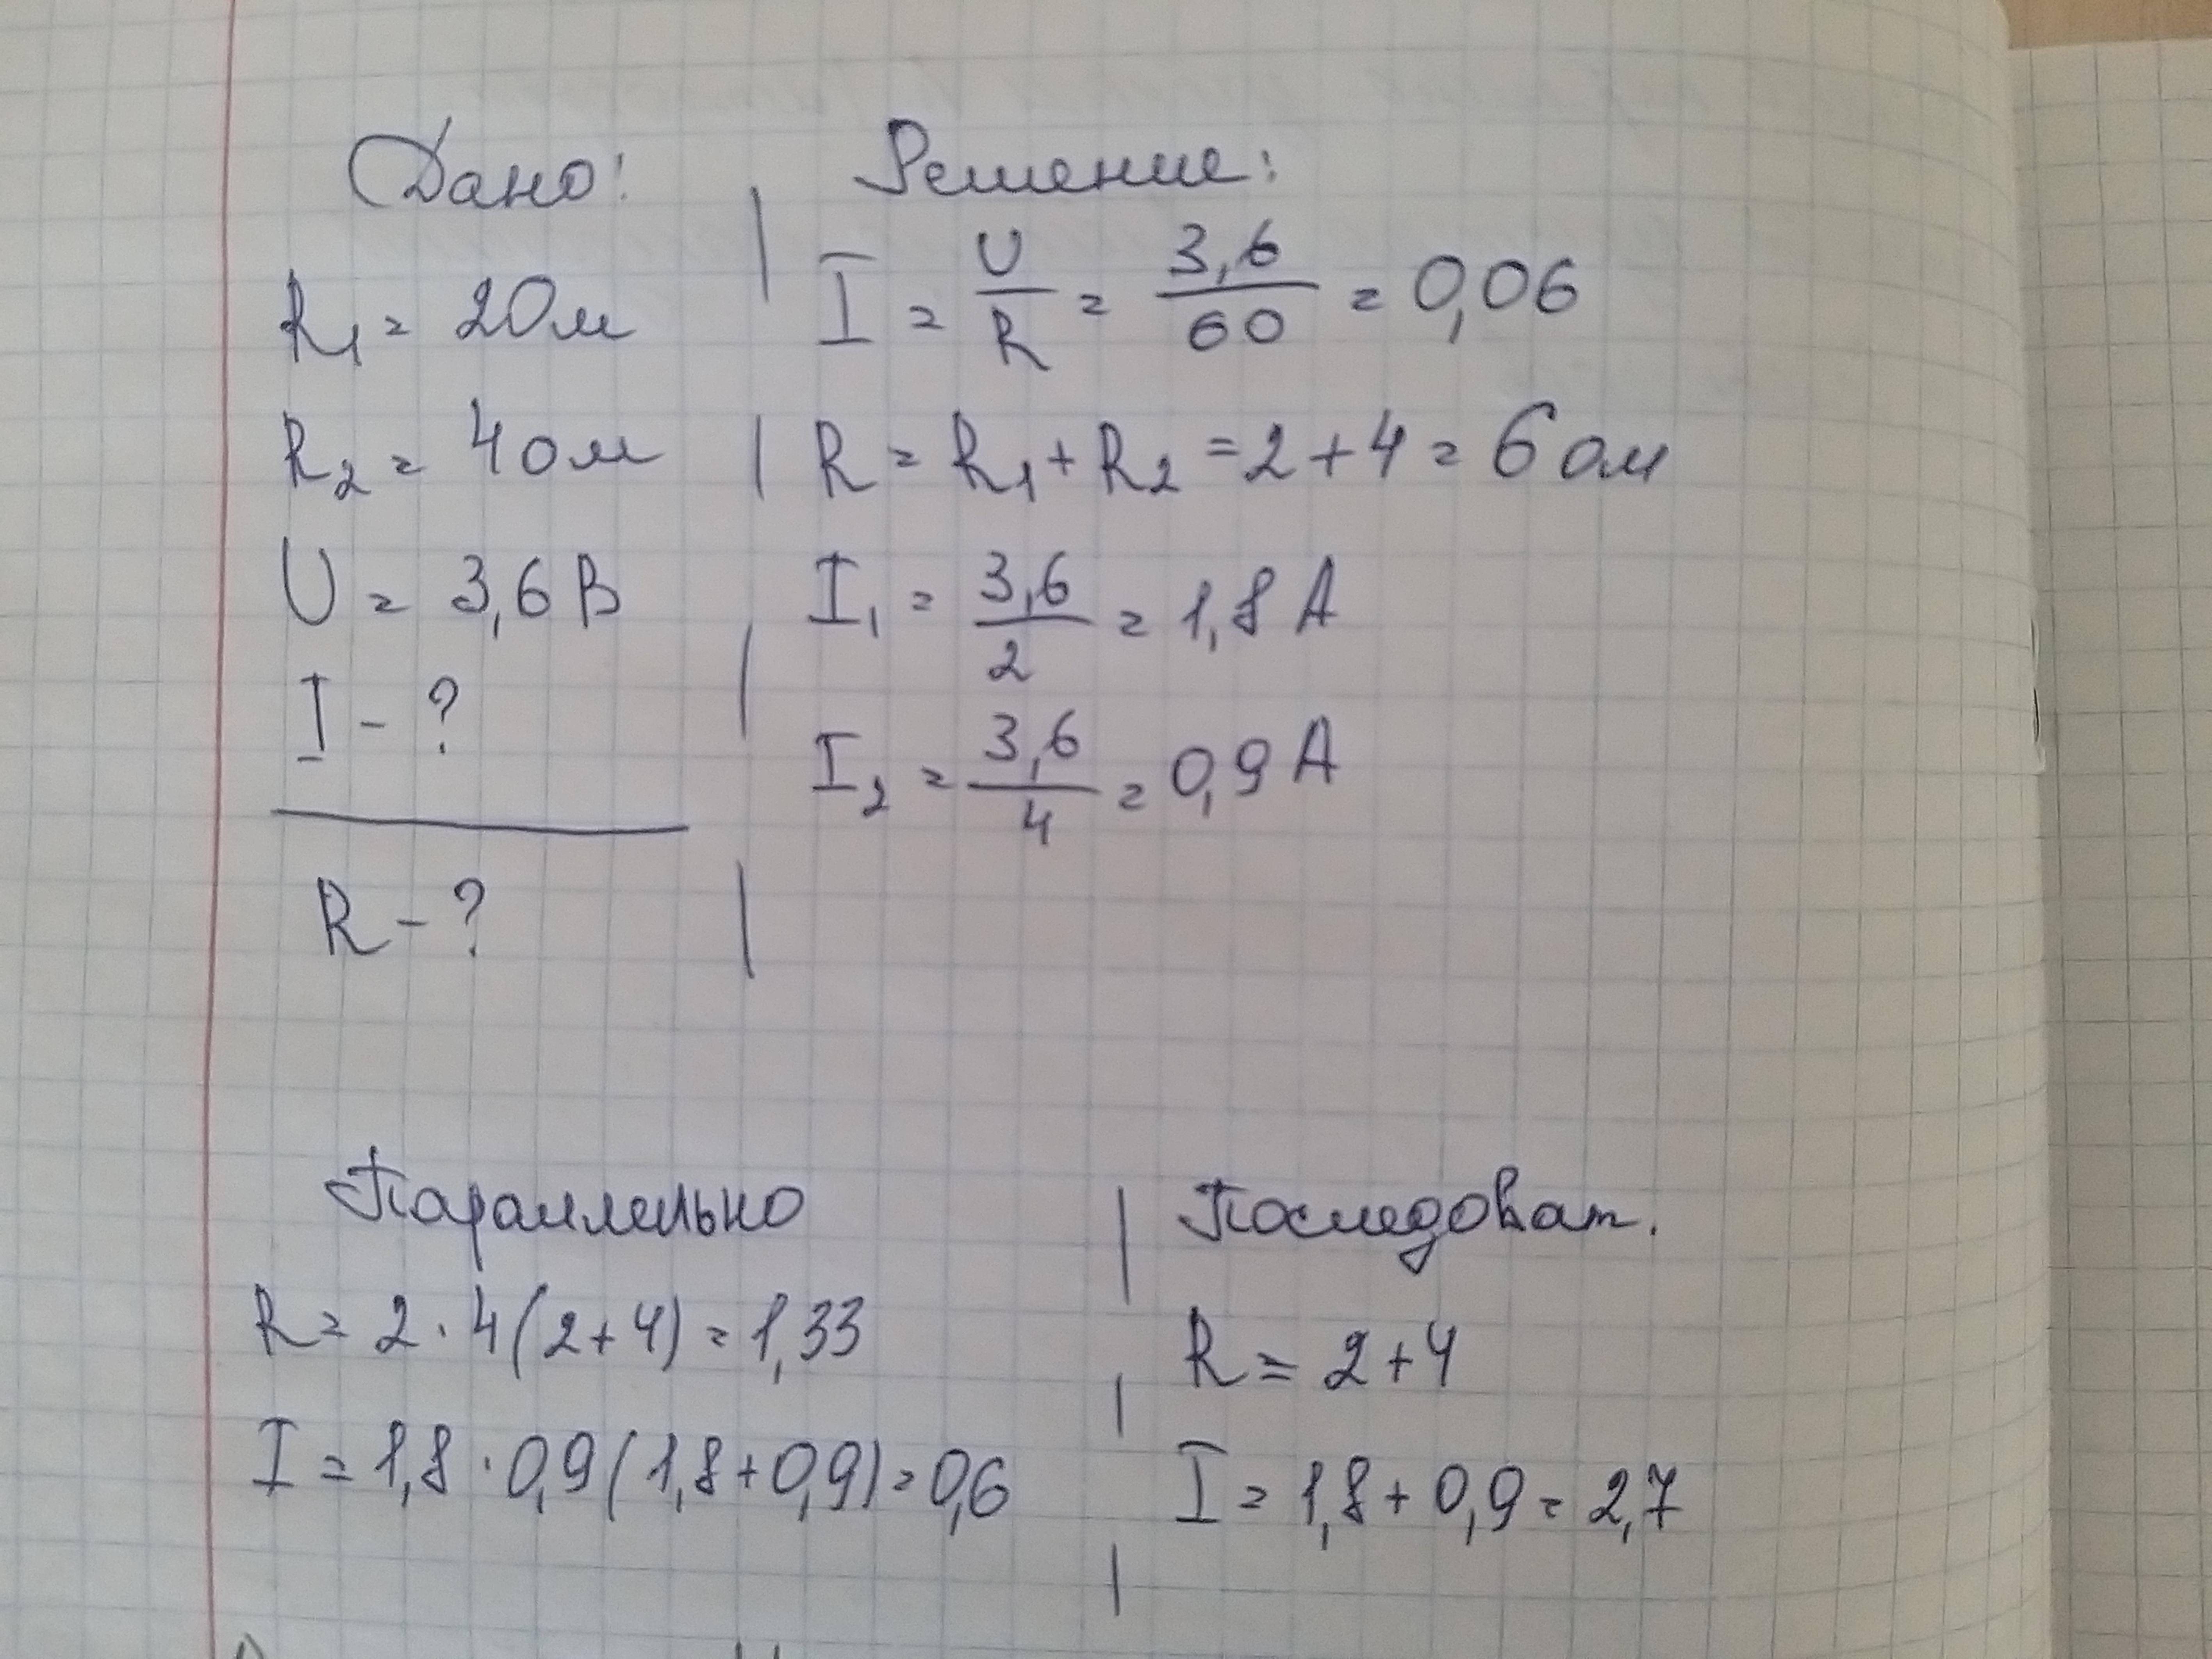 Дано:
Решение:
R₁ = 2 Ом
I = U/R = 3,6/60 = 0,06
R₂ = 4 ом
R = R₁ + R₂ = 2 + 4 = 6 ом
U = 3,6 В
I₁ = 3,6/2 = 1,8 А
I - ?
I₂ = 3,6/4 = 0,9 А
R - ?
Параллельно
R = 2 · 4 (2+4) = 1,33
I = 1,8 · 0,9 (1,8+0,9) = 0,6
Последоват.
R = 2+4
I = 1,8 + 0,9 = 2,7